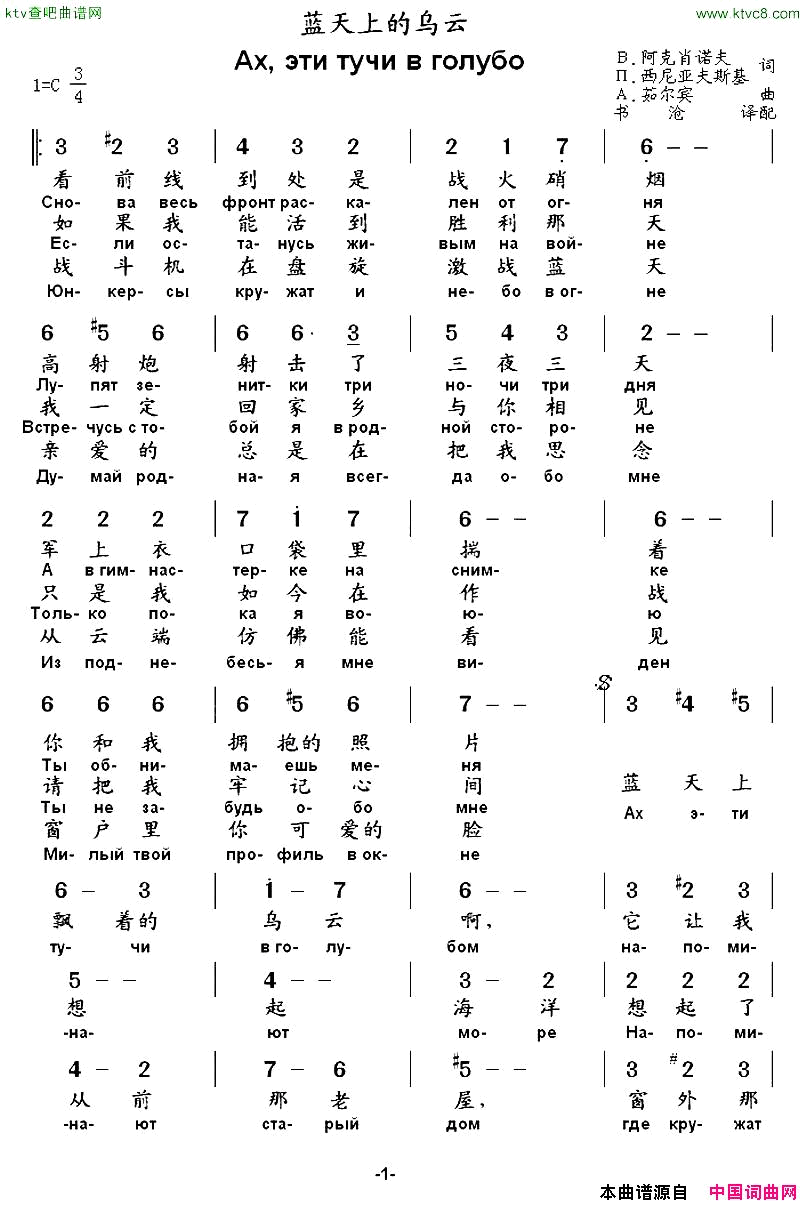 ktv查吧曲谱网
www.ktvc8.com
蓝天上的乌云
Ах, эти тучи в голубо
1=C 3/4
В. 阿克肖诺夫 词
П. 西尼亚夫斯基
А. 茹尔宾 曲
书沧 译配
3 #2 3 | 4 3 2 | 2 1 7 | 6 - - |
看前线到处是战火硝烟
Сно- ва весь фронт рас- ка- лен от ог- ня
如果我能活到胜利那天
Ес- ли ос- та- нусь жи- вым на вой- не
战斗机在盘旋激战蓝天
Юн- кер- сы кру- жат и не- бо в ог- не
6 #5 6 | 6 6· 3 | 5 4 3 | 2 - - |
高射炮射击了三夜三天
Лу- пят зе- нит- ки три но- чи три дня
我一定回家乡与你相见
Встре- чусь с то- бой я в род- ной сто- ро- не
亲爱的总是在把我思念
Ду- май род- на- я всег- да о- бо мне
2 2 2 | 7 1 7 | 6 - - | 6 - - |
军上衣口袋里揣着
А в гим- нас- тер- ке на сним- ке
只是我如今在作战
Толь- ко по- ка я во- ю- ю
从云端仿佛能看见
Из под- не- бесь- я мне ви- ден
6 6 6 | 6 #5 6 | 7 - - | 3 #4 #5 |
你和我拥抱的照片
Ты об- ни- ма- ешь ме- ня
请把我牢记心间 蓝天上
Ты не за- будь о- бо мне Ах э- ти
窗户里你可爱的脸
Ми- лый твой про- филь в ок- не
6 - 3 | 1 - 7 | 6 - - | 3 #2 3 |
飘着的乌云啊,它让我
ту- чи в го- лу- бом на- по- ми-
5 - - | 4 - - | 3 - 2 | 2 2 2 |
想起海洋想起了
-на- ют мо- ре На- по- ми-
4 - 2 | 7 - 6 | #5 - - | 3 #2 3 |
从前那老屋,窗外那
-на- ют ста- рый дом где кру- жат
-1-
本曲谱源自 中国词曲网